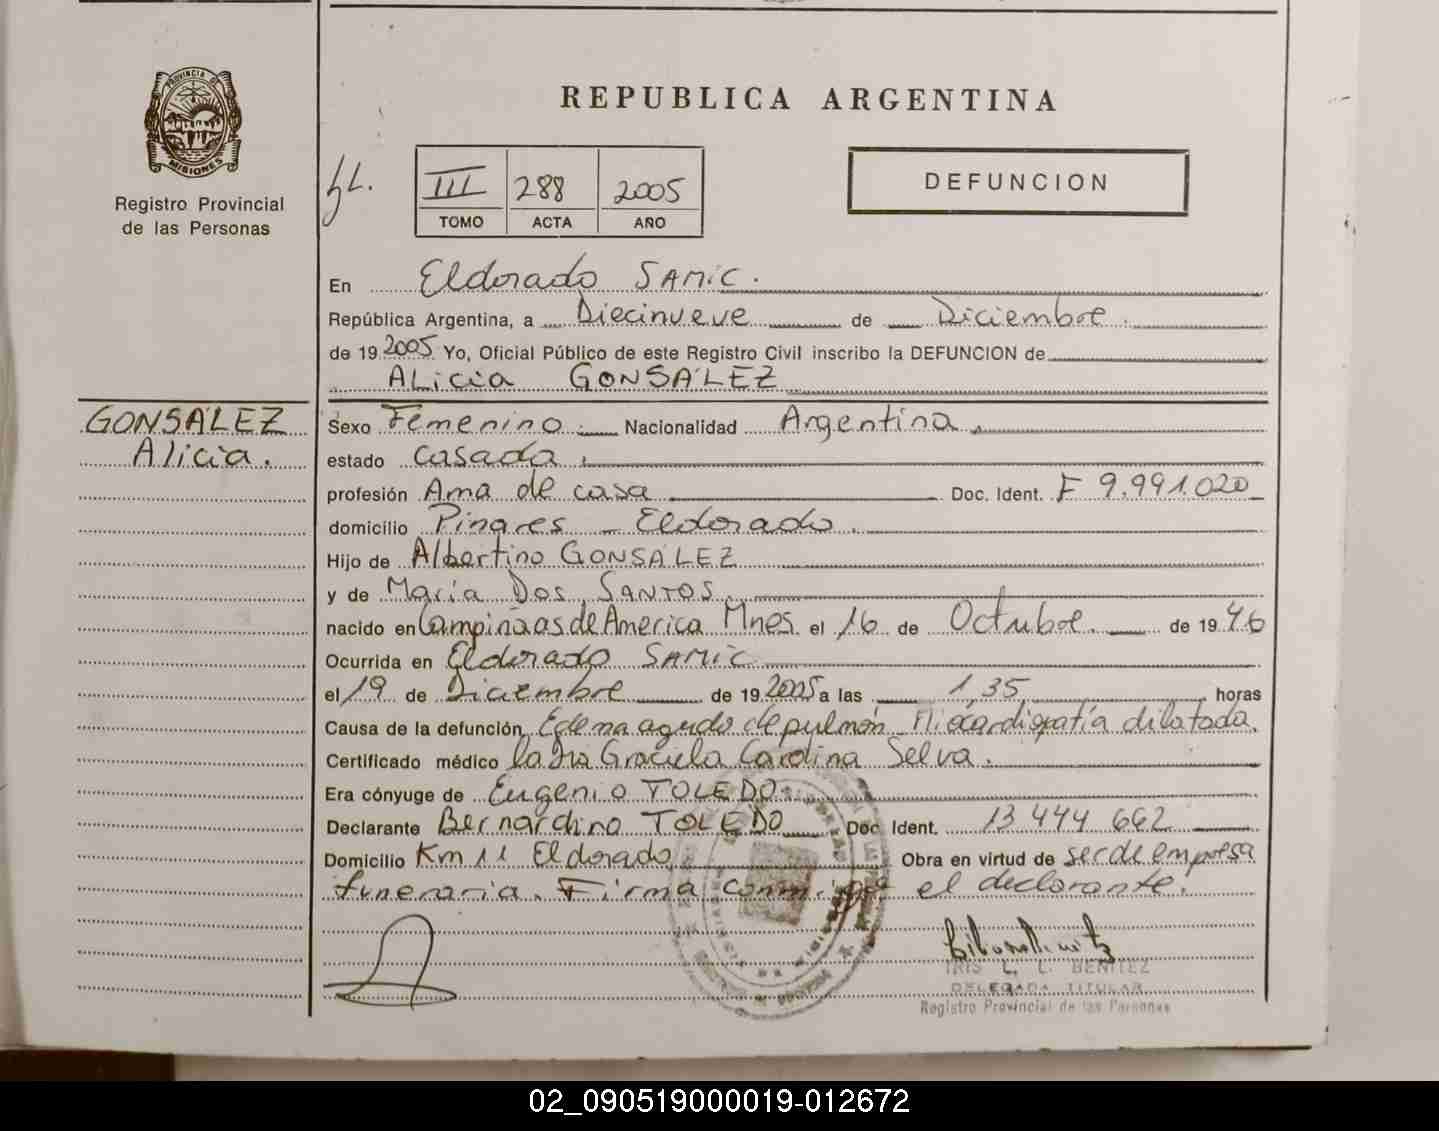 REPUBLICA ARGENTINA
PROVINCIA DE
MISIONES
Registro Provincial
de las Personas
III 288 2005
TOMO ACTA AÑO
DEFUNCION
En Eldorado SAMIC.
República Argentina, a Diecinueve de Diciembre.
de 19 2005 Yo, Oficial Público de este Registro Civil inscribo la DEFUNCION de
ALicia GONSÁLEZ
GONSÁLEZ
Alicia.
Sexo Femenino. Nacionalidad Argentina.
estado casada.
profesión Ama de casa Doc. Ident. F 9.991.020
domicilio Pinares - Eldorado.
Hijo de Albertino GONSÁLEZ
y de María Dos SANTOS.
nacido en Campiñaas de America Mnes. el 16 de Octubre. de 19 46
Ocurrida en Eldorado SAMIC
el 19 de Diciembre de 19 2005 a las 1,35 horas
Causa de la defunción Edema agudo de pulmón Miocardiopatía dilatada.
Certificado médico la Dra Graciela Carolina Selva.
Era cónyuge de Eugenio TOLEDO.
Declarante Bernardino TOLEDO Doc. Ident. 13 444 662
Domicilio Km 11 Eldorado Obra en virtud de ser de empresa
funeraria. Firma conmigo el declarante.
IRIS L. L. BENITEZ
DELEGADA TITULAR
Registro Provincial de las Personas
02_090519000019-012672